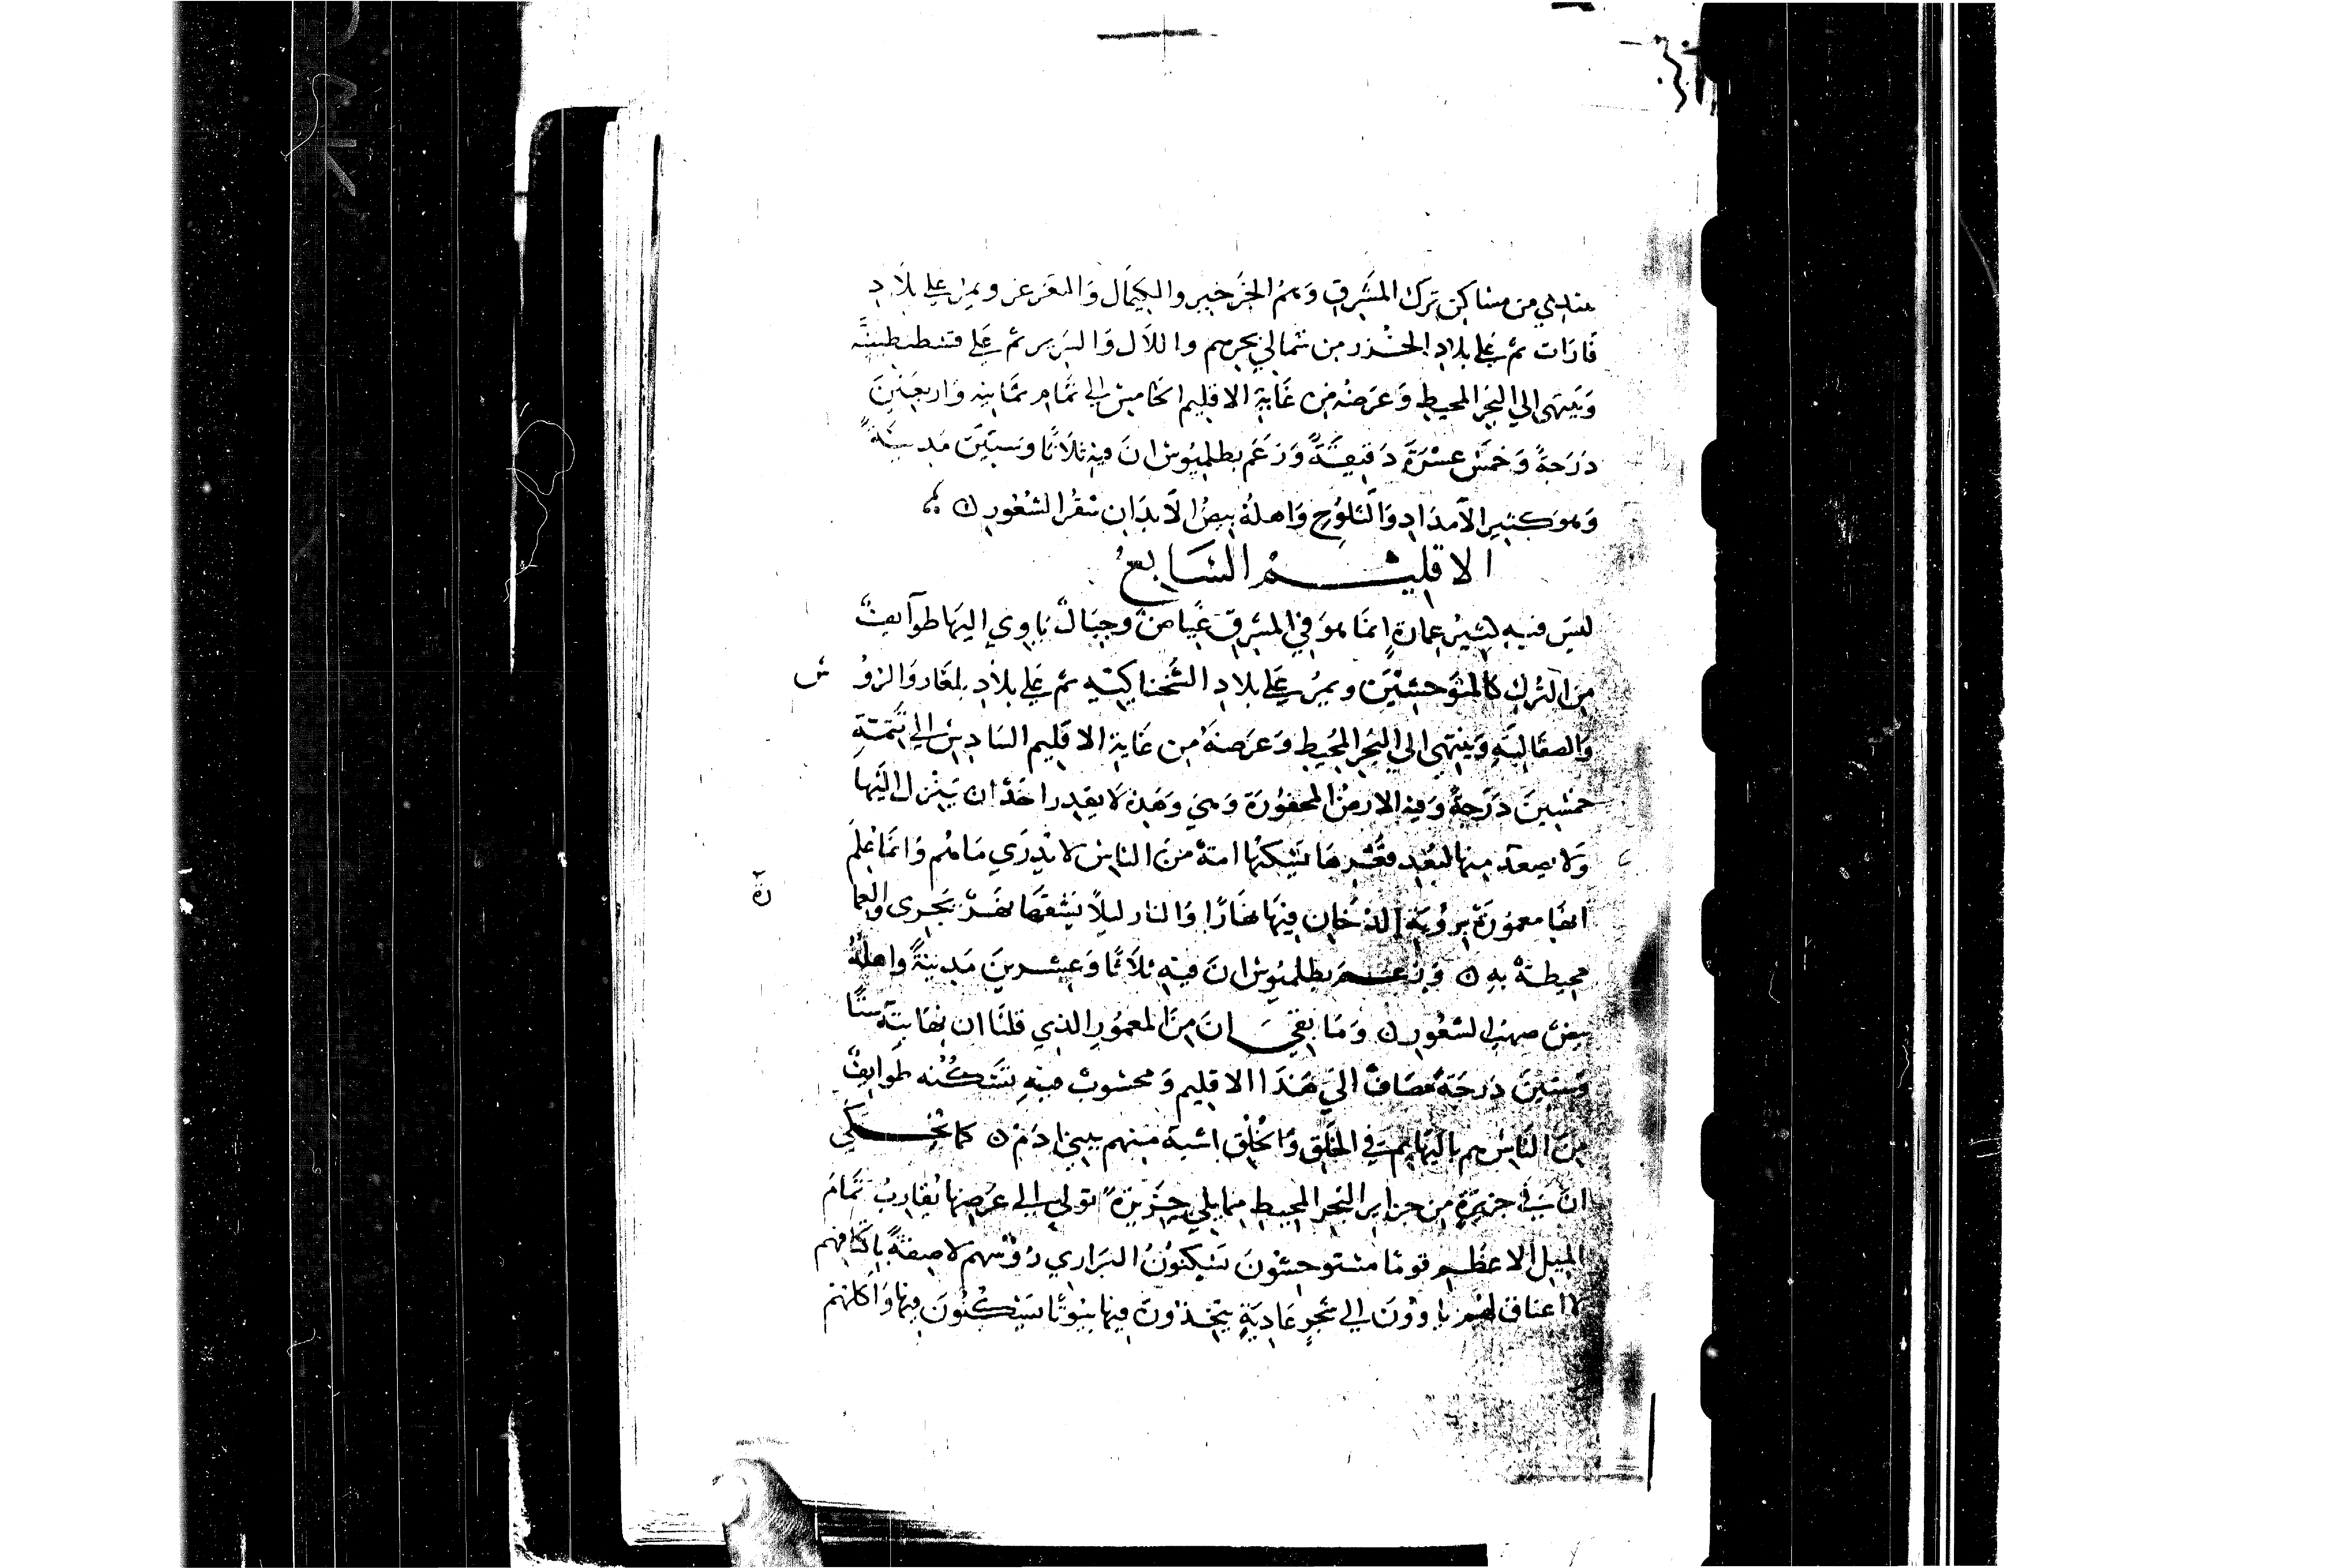 يبتدي من مساكن ترك المشرق وهم الخرخير والكيمال والتغزغز ويمر علي بلاد
قارات ثم علي بلاد الخزر من شمالي بحرهم واللان والسرير ثم علي قسطنطينية
وينتهي الي البحر المحيط وعرضه من غاية الاقليم الخامس الي تمام ثمانية واربعين
درجة وخمس عشرة دقيقة وزعم بطلميوس ان فيه ثلاثا وستين مدينة
وهو كثير الامداد والثلوج واهله بيض الابدان شقر الشعور
الاقليم السابع
ليس فيه كثير عمارة انما هو في المشرق غياض وجبال ياوي اليها طوآيف
من الترك كالمتوحشين ويمر علي بلاد البجناكيه ثم علي بلاد بلغار والروس
والصقالبة وينتهي الي البحر المحيط وعرضه من غاية الاقليم السادس الي تتمة
خمسين درجة وفيه الارض المحفورة وهي وهدة لا يقدر احد ان ينزل اليها
ولا يصعد منها لبعد قعرها يسكنها امة من الناس لا يدري ما هم وانما علم
انها معمورة برؤية الدخان فيها نهارا والنار ليلا يشقها نهر يجري والعمارة
محيطة به وزعم بطلميوس ان فيه ثلاثا وعشرين مدينة واهله
بيض صهب الشعور وما بقي من المعمور الذي قلنا ان نهايته ستا
وستين درجة مضاف الي هذا الاقليم ومحسوب فيه يسكنه طوايف
من الناس هم بالبهايم في الخلق والخلق اشبه منهم ببني ادم كما يحكي
ان في جزيرة من جزاير البحر المحيط مما يلي جزيرة تولي الي عرضها يقارب تمام
الميل الاعظم قوما متوحشون يسكنون البراري رؤسهم لاصقة باكتافهم
لا اعناق لهم ياوون الي شجر عادية يتخذون فيها بيوتا يسكنون فيها واكلهم